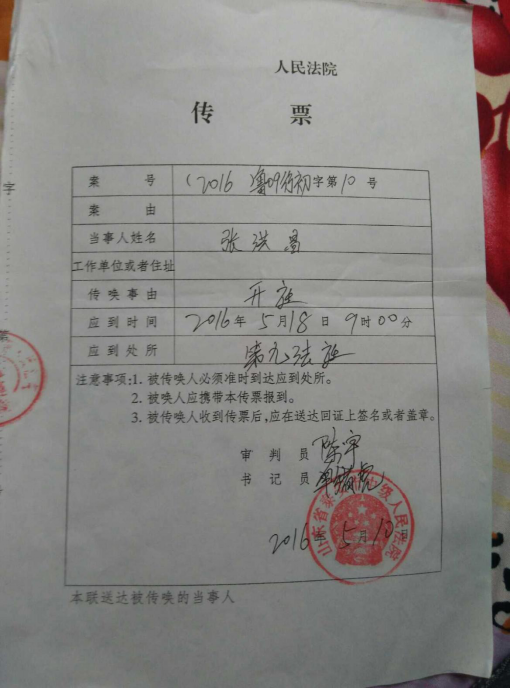 人民法院
传 票
案 号 (2016)鲁09行初字第10号
案 由
当事人姓名 张洪昌
工作单位或者住址
传唤事由 开庭
应到时间 2016年5月18日9时00分
应到处所 第九法庭
注意事项:1. 被传唤人必须准时到达应到处所。
2. 被唤人应携带本传票报到。
3. 被传唤人收到传票后,应在送达回证上签名或者盖章。
审 判 员 陈宇
书 记 员
山东省 级人民法院
2016年5月10
本联送达被传唤的当事人
字